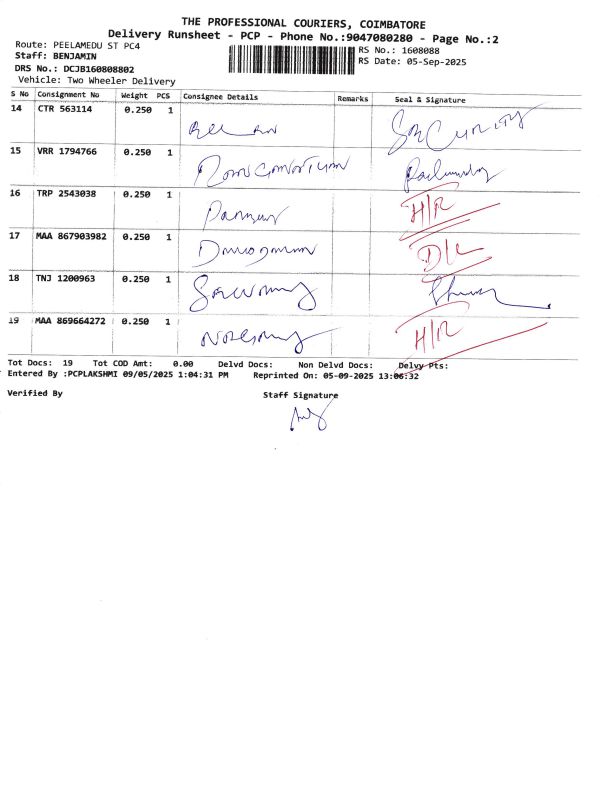 THE PROFESSIONAL COURIERS, COIMBATORE
Delivery Runsheet - PCP - Phone No.:9047080280 - Page No.:2
Route: PEELAMEDU ST PC4
RS No.: 1608088
Staff: BENJAMIN
RS Date: 05-Sep-2025
DRS No.: DCJB160808802
Vehicle: Two Wheeler Delivery
S No Consignment No Weight PCS Consignee Details Remarks Seal & Signature
14 CTR 563114 0.250 1
SECURITY
15 VRR 1794766 0.250 1
16 TRP 2543038 0.250 1
H/R
17 MAA 867903982 0.250 1
D/L
18 TNJ 1200963 0.250 1
19 MAA 869664272 0.250 1
H/R
Tot Docs: 19 Tot COD Amt: 0.00 Delvd Docs: Non Delvd Docs: Delvy Pts:
Entered By :PCPLAKSHMI 09/05/2025 1:04:31 PM Reprinted On: 05-09-2025 13:06:32
Verified By Staff Signature